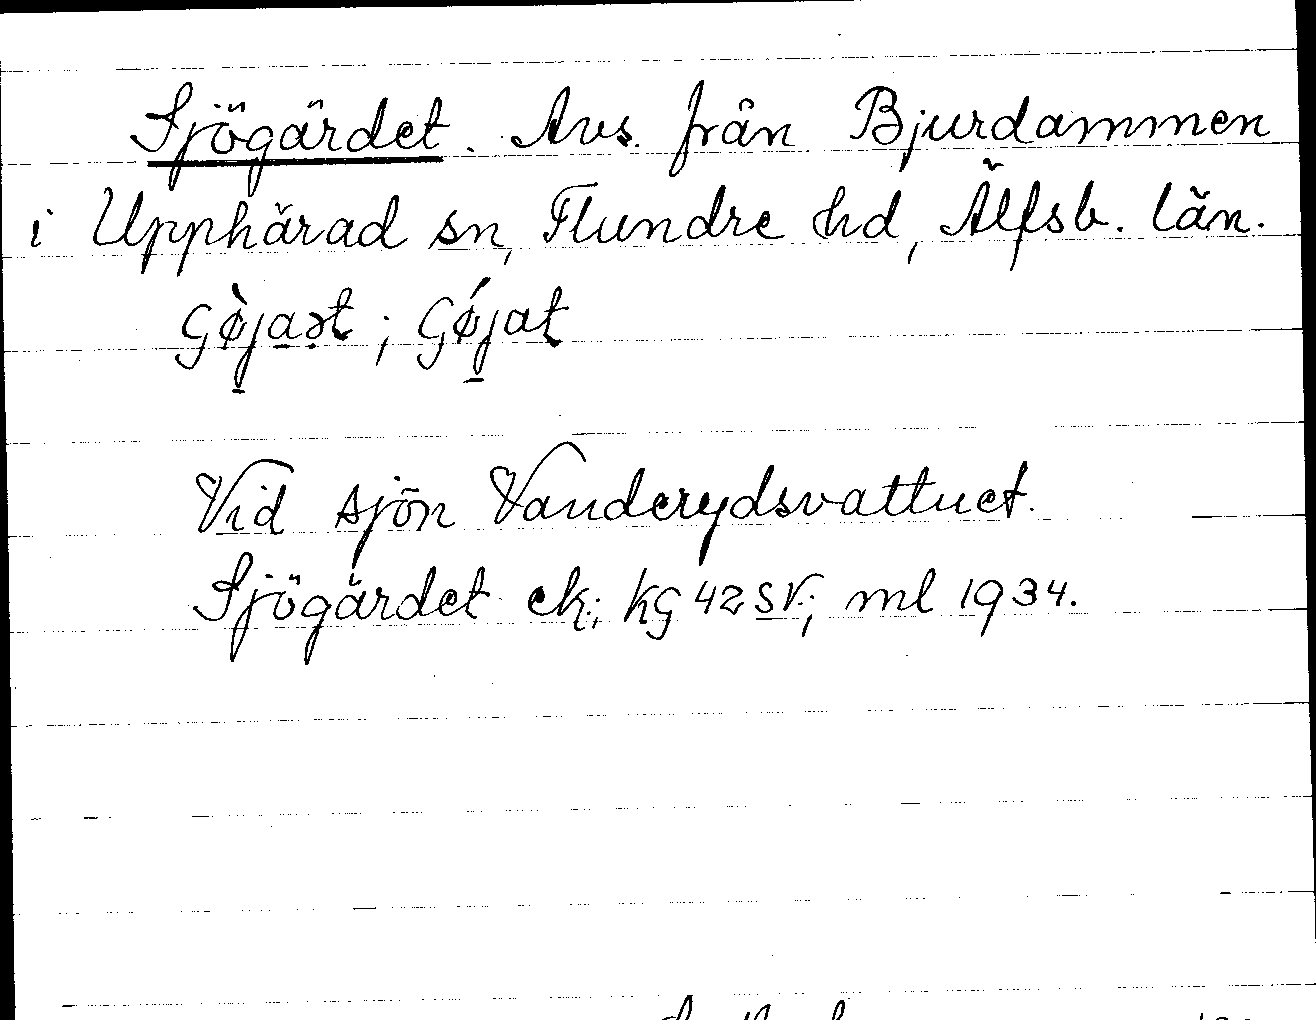 Sjögärdet. Avs. från Bjurdammen
i Upphärad sn, Flundre hd, Älfsb. län.
Vid sjön Vanderydsvattnet.
Sjögärdet ek; kg 42 SV; ml 1934.